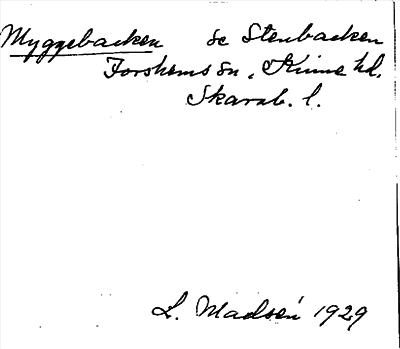 Myggebacken se Stenbacken
Forshems sn, Kinne hd.
Skarab. l.
L. Madsén 1929